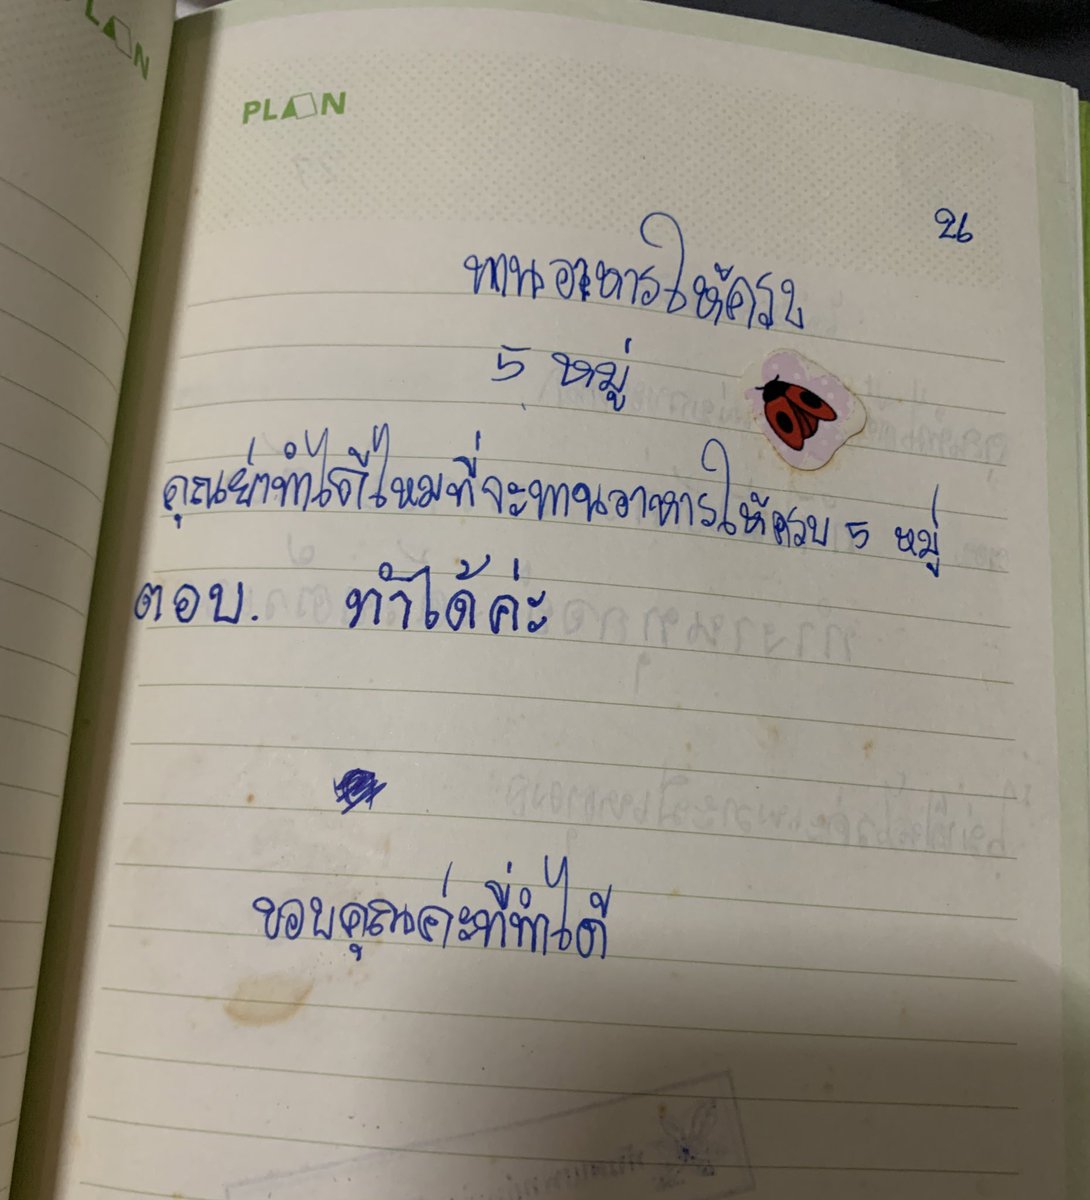 PLAN
PLAN
26
ทานอาหารให้ครบ
5 หมู่
คุณย่าทำได้ไหมที่จะทานอาหารให้ครบ 5 หมู่
ตอบ. ทำได้ค่ะ
ขอบคุณค่ะที่ทำได้